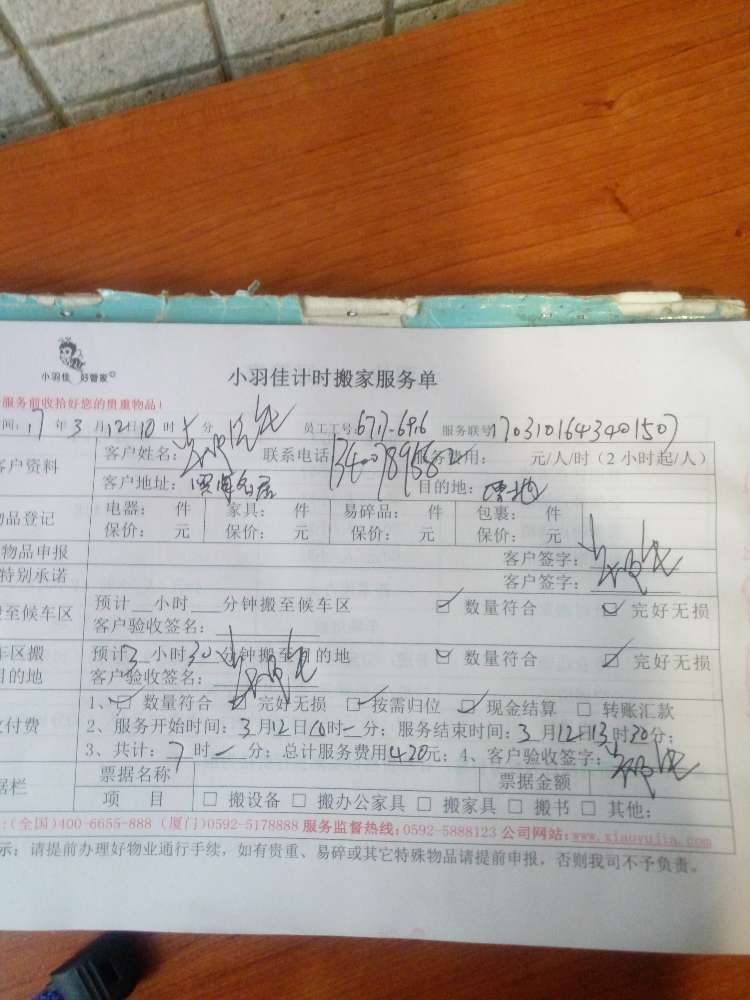 小羽佳 好管家
小羽佳计时搬家服务单
服务前收拾好您的贵重物品!
间:17年3月12日10时 分 员工工号:6717-6916 服务联号:1703101643401507
客户资料 客户姓名: 联系电话 服务费用: 元/人/时(2小时起/人)
客户地址: 目的地:
物品登记 电器: 件 家具: 件 易碎品: 件 包裹: 件
保价: 元 保价: 元 保价: 元 保价: 元
物品申报 客户签字:
特别承诺 客户签字:
搬至候车区 预计__小时___分钟搬至候车区 ☑ 数量符合 ☑ 完好无损
客户验收签名:
车区搬 预计3小时30分钟搬至目的地 ☑ 数量符合 ☑ 完好无损
目的地 客户验收签名:
1、☑ 数量符合 ☑ 完好无损 ☑ 按需归位 ☑ 现金结算 □ 转账汇款
付费 2、服务开始时间:3月12日10时一分;服务结束时间:3月12日13时30分;
3、共计:7时一分;总计服务费用420元;4、客户验收签字:
据栏 票据名称 票据金额
项 目 □ 搬设备 □ 搬办公家具 □ 搬家具 □ 搬书 □ 其他:
:(全国)400-6655-888 (厦门)0592-5178888 服务监督热线:0592-5888123 公司网站:www.xiaoyujia.com
示:请提前办理好物业通行手续,如有贵重、易碎或其它特殊物品请提前申报,否则我司不予负责。